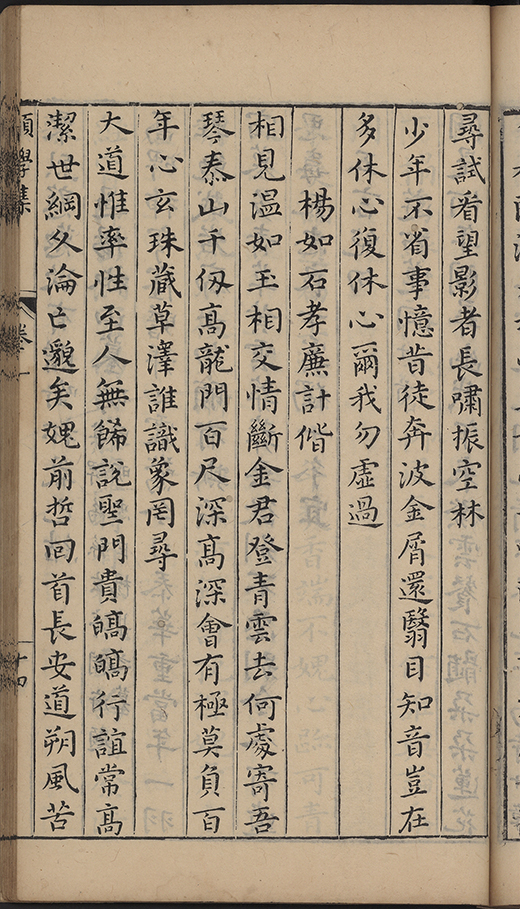 尋試看望影者長嘯振空林
少年不省事憶昔徒奔波金屑還翳目知音豈在
多休心復休心爾我勿虛過
楊如石孝廉計偕
相見溫如玉相交情斷金君登青雲去何處寄吾
琴泰山千仭高龍門百尺深高深會有極莫負百
年心玄珠藏草澤誰識象罔尋
大道惟率性至人無餙說聖門貴皜皜行誼常高
潔世綱久淪亡邈矣媿前哲回首長安道朔風苦
學集
卷一
十四